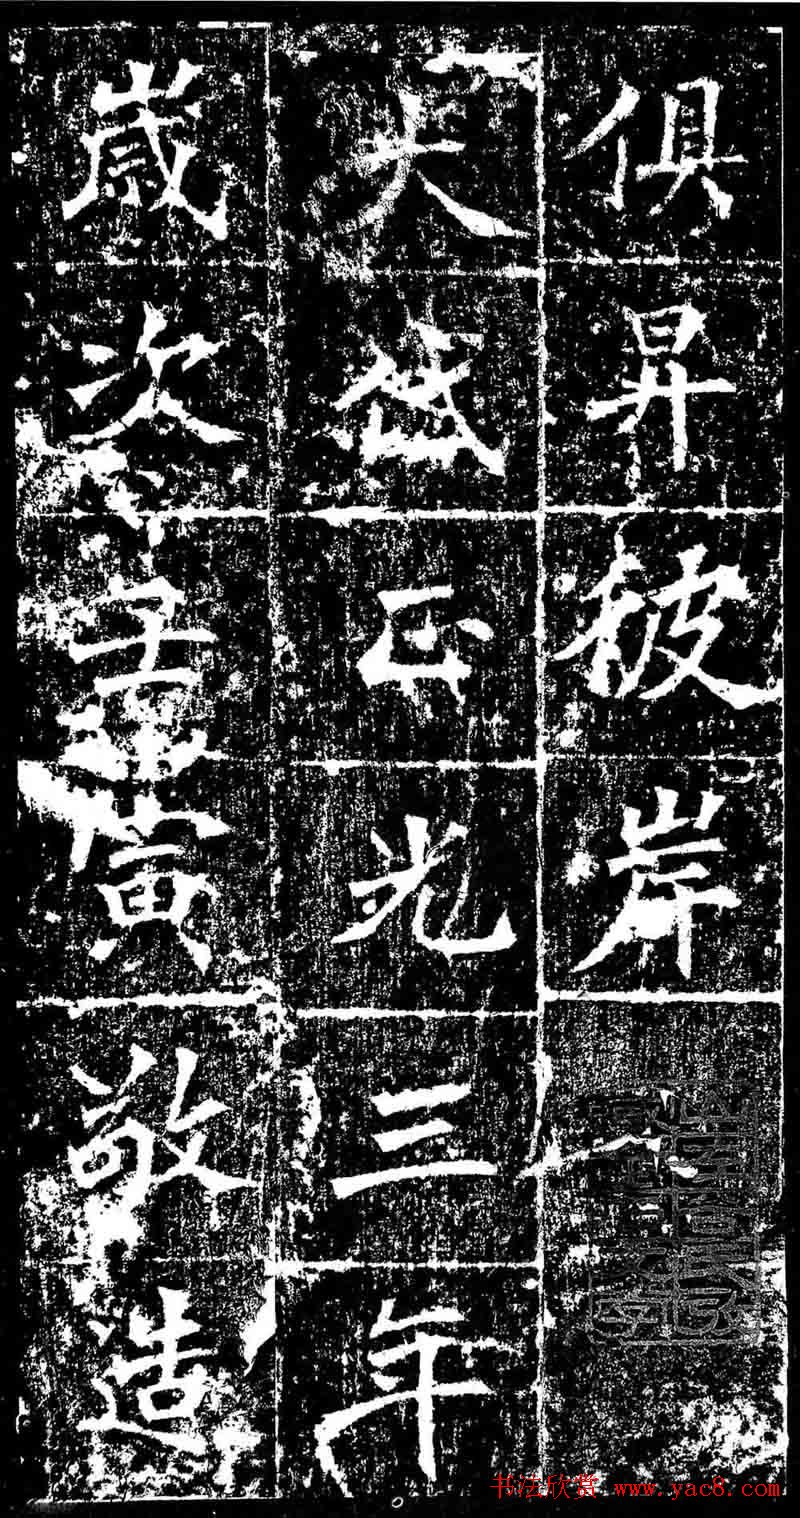 俱昇彼岸
大岱正光三年
歲次壬寅敬造
书法欣赏 www.yac8.com